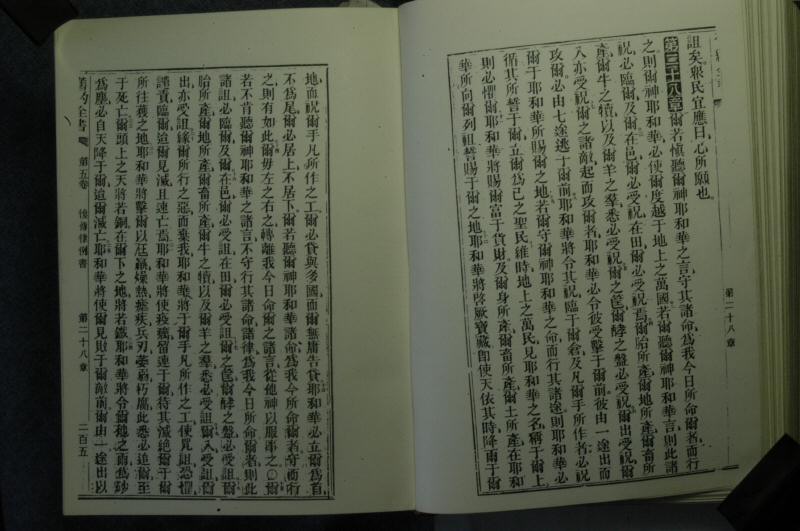 詛矣、眾民宜應曰、心所願也、
第二十八章 爾若慎聽爾神耶和華之言、守其諸命、爲我今日所命爾者而行
之、則爾神耶和華必使爾度越于地上之萬國、若爾聽爾神耶和華言、則此諸
祝必臨爾及爾、在邑爾必受祝、在田爾必受祝焉、爾胎所產、爾地所產、爾畜所
產、爾牛之犢、以及爾羊之羣、悉必受祝、爾之筐、爾酵之盤、必受祝、爾出受祝、爾
入亦受祝、爾之諸敵起而攻爾者、耶和華必令彼受擊于爾前、彼由一途出而
攻爾、必由七途逃于爾前、耶和華將令其祝臨于爾倉、及凡爾手所作者、必祝
爾于耶和華所賜爾之地、若爾守爾神耶和華之命、而行其諸途、則耶和華必
循其所誓于爾、立爾爲己之聖民、維時地上之萬民、見耶和華之名稱于爾上、
則必懼爾、耶和華將賜爾富于貨財、及爾身所產、爾畜所產、爾土所產、在耶和
華所向爾列祖誓賜于爾之地、耶和華將啓厥寶藏、即使天依其時降雨于爾
第二十八章
地、而祝爾手凡所作之工、爾必貸與多國、而爾無庸告貸、耶和華必立爾爲首、
不爲尾、爾必居上、不居下、爾若聽爾神耶和華諸命、爲我今所命爾者、守而行
之、則有如此、爾毋左之右之、轉離我今日命爾之諸言、從他神以服事之、〇爾
若不肯聽爾神耶和華之言、不守行其諸命諸律、爲我今日所命爾者、則此
諸詛必臨爾及爾、在邑爾必受詛、在田爾必受詛、爾之筐、爾酵之盤、必受詛、爾
胎所產、爾地所產、爾畜所產、爾牛之犢、以及爾羊之羣、悉必受詛、爾入受詛、爾
出亦受詛、緣爾所行之惡而棄我、耶和華將于爾手凡所作之工、使見詛恐懼
譴責、臨爾迨爾見滅且速亡焉、耶和華將使疫癘留連于爾、待其滅絕爾于爾
所往獲之地、耶和華將擊爾以尫羸、燥熱、瘧疾、兵刃、朽腐、此悉必追爾、至
于死亡、爾頭上之天將若銅、在爾下之地將若鐵、耶和華將令爾地之雨爲砂
爲塵、必自天降于爾、迨爾滅亡、耶和華將使爾見敗于爾敵前、爾由一途出以
舊約全書 第五卷 復傳律例書 第二十八章 二百五